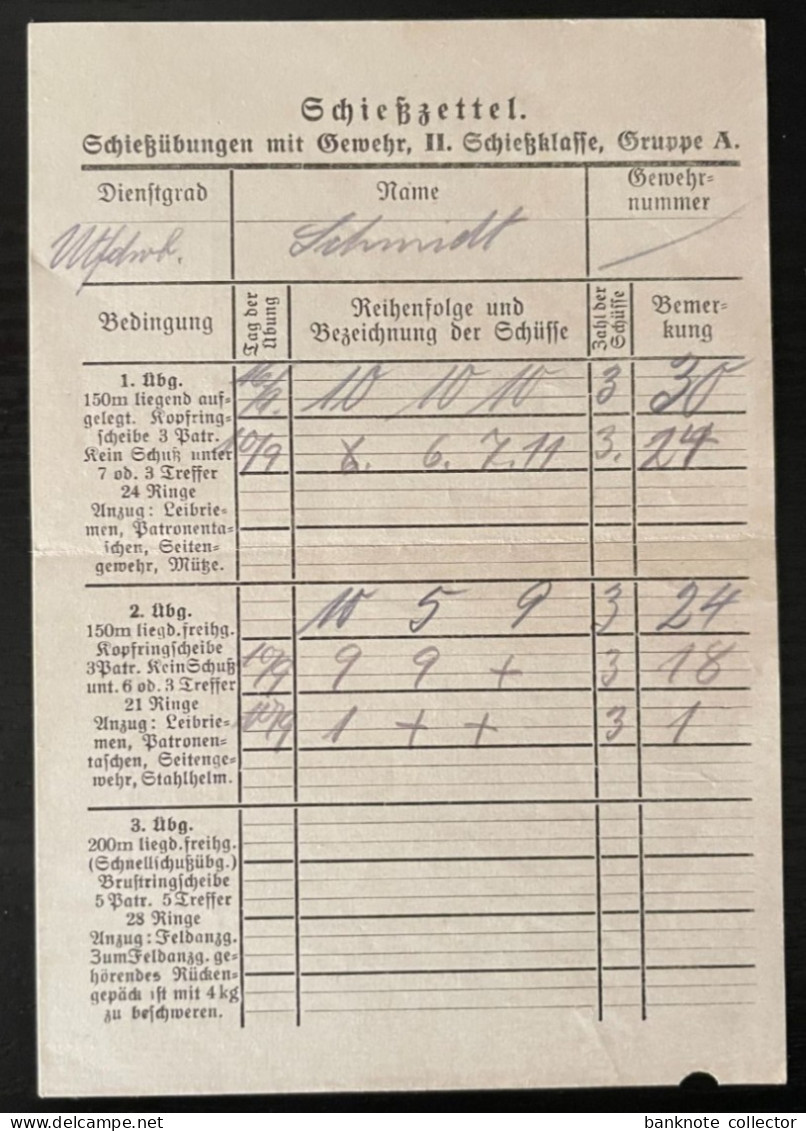 Schießzettel.
Schießübungen mit Gewehr, II. Schießklasse, Gruppe A.
Dienstgrad Name Gewehr-
nummer
Utfdwb. Schmidt
Bedingung Tag der Übung Reihenfolge und Bezeichnung der Schüsse Zahl der Schüsse Bemer-
kung
1. Übg.
150m liegend auf-
gelegt. Kopfring-
scheibe 3 Patr.
Kein Schuß unter
7 od. 3 Treffer
24 Ringe
Anzug: Leibrie-
men, Patronenta-
schen, Seiten-
gewehr, Mütze.
10 10 10 3 30
10/9 6. 7. 11 3. 24
2. Übg.
150m liegd. freihg.
Kopfringscheibe
3 Patr. Kein Schuß
unt. 6 od. 3 Treffer
21 Ringe
Anzug: Leibrie-
men, Patronen-
taschen, Seitenge-
wehr, Stahlhelm.
10 5 9 3 24
10/9 9 9 + 3 18
10/9 1 + + 3 1
3. Übg.
200m liegd. freihg.
(Schnellschußübg.)
Brustringscheibe
5 Patr. 5 Treffer
28 Ringe
Anzug: Feldanzg.
Zum Feldanzg. ge-
hörendes Rücken-
gepäck ist mit 4 kg
zu beschweren.
banknote collector